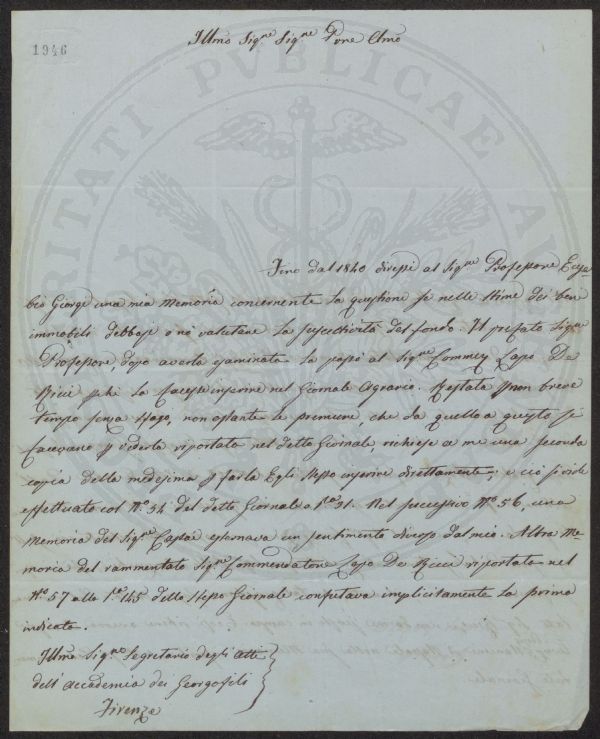 1946
Illmo Sigre Sigre Prne Clmo
Fino dal 1840 diressi al Sigre Professore Euse
bio Giorgi una mia Memoria concernente la questione se nelle stime dei beni
immobili debbasi o nò valutare la suscettività del fondo. Il prefato Sigre
Professore dopo averla esaminata la passò al Sigre Commre Lapo De
Ricci pchè la facesse inserire nel Giornale Agrario. Restata p non breve
tempo senza sfogo, non ostante le premure, che da quello a questo si
facevano p vederla riportata nel detto Giornale, richiese a me una seconda
copia della medesima p farla Egli stesso inserire direttamente; e ciò si vide
effettuato col No 54 del detto Giornale a 91. Nel successivo No 56, una
Memoria del Sigre esternava un sentimento diverso dal mio. Altra Me
moria del rammentato Sigre Commendatore Lapo De Ricci riportata nel
No 57 alla 145 dello stesso Giornale confutava implicitamente la prima
indicata.
Illmo Sigre Segretario degli Atti
dell'Accademia dei Georgofili
Firenze